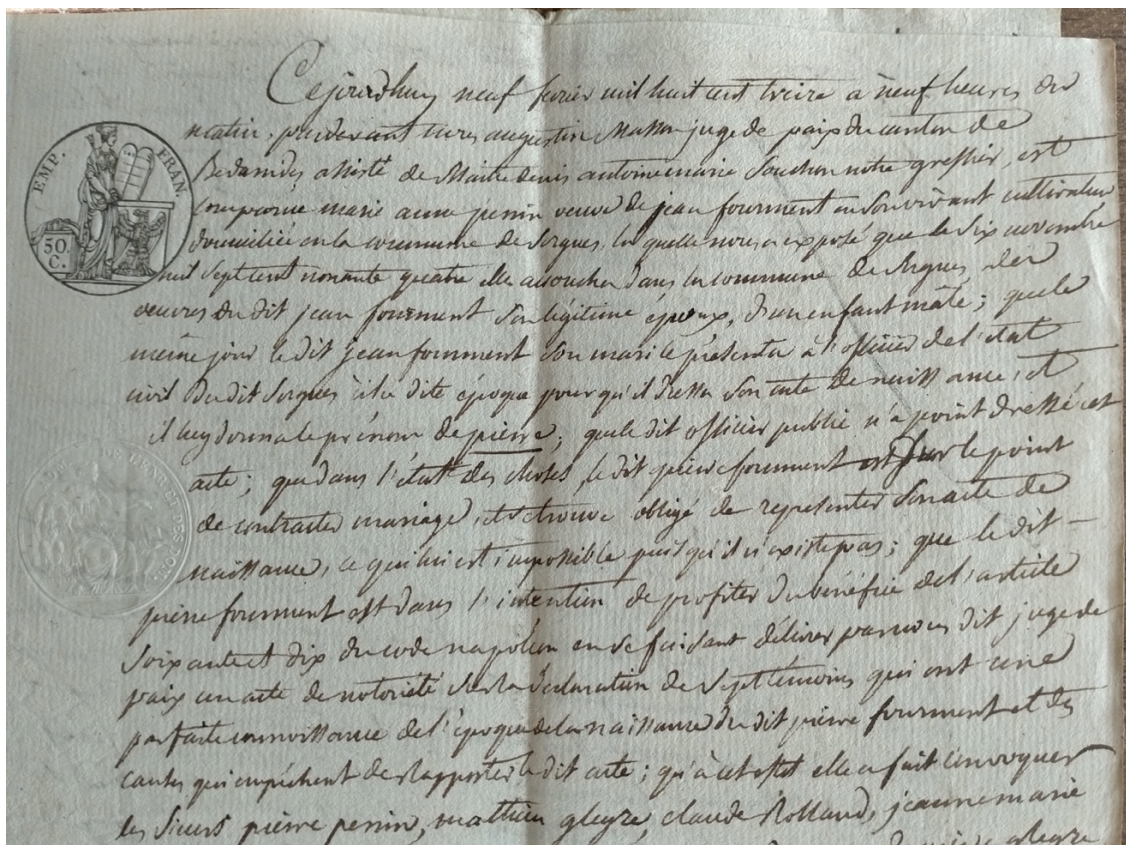 Cejourdhuy neuf fevrier mil huit cent treize à neuf heures du
matin, pardevant nous augustin Masson juge de paix du canton de
Bedarrides assisté de Maitre denis antoine marie Souchon notre greffier, est
comparue marie anne perrin veuve de jean fourment en son vivant cultivateur
domiciliée en la commune de Sorgues, la quelle nous a exposé que le six novembre
mil sept cent nonante quatre elle accoucha dans la commune de Sorgues, des
œuvres du dit jean fourment son légitime époux, d'un enfant mâle; que le
même jour le dit jean fourment son mari le présenta à l'officier de l'état
civil du dit Sorgues à la dite époque pour qu'il dressa son acte de naissance, et
il luy donna le prénom de pierre; que le dit officier public n'a point dressé cet
acte; que dans l'état des choses, le dit pierre fourment est sur le point
de contracter mariage, et se trouve obligé de representer son acte de
naissance, ce qui lui est impossible puisqu'il n'existe pas; que le dit
pierre fourment est dans l'intention de profiter du bénéfice de l'article
soixante et dix du code napoléon en se faisant délivrer par nous dit juge de
paix un acte de notorieté sur la déclaration de sept témoins qui ont une
parfaite connoissance de l'époque de la naissance du dit pierre fourment et des
causes qui empéchent de rapporter le dit acte; qu'à cet effet elle a fait convoquer
les sieurs pierre perrin, mathieu glegze, claude Rolland, jeanne marie
glegze
EMP. FRAN.
50 C.